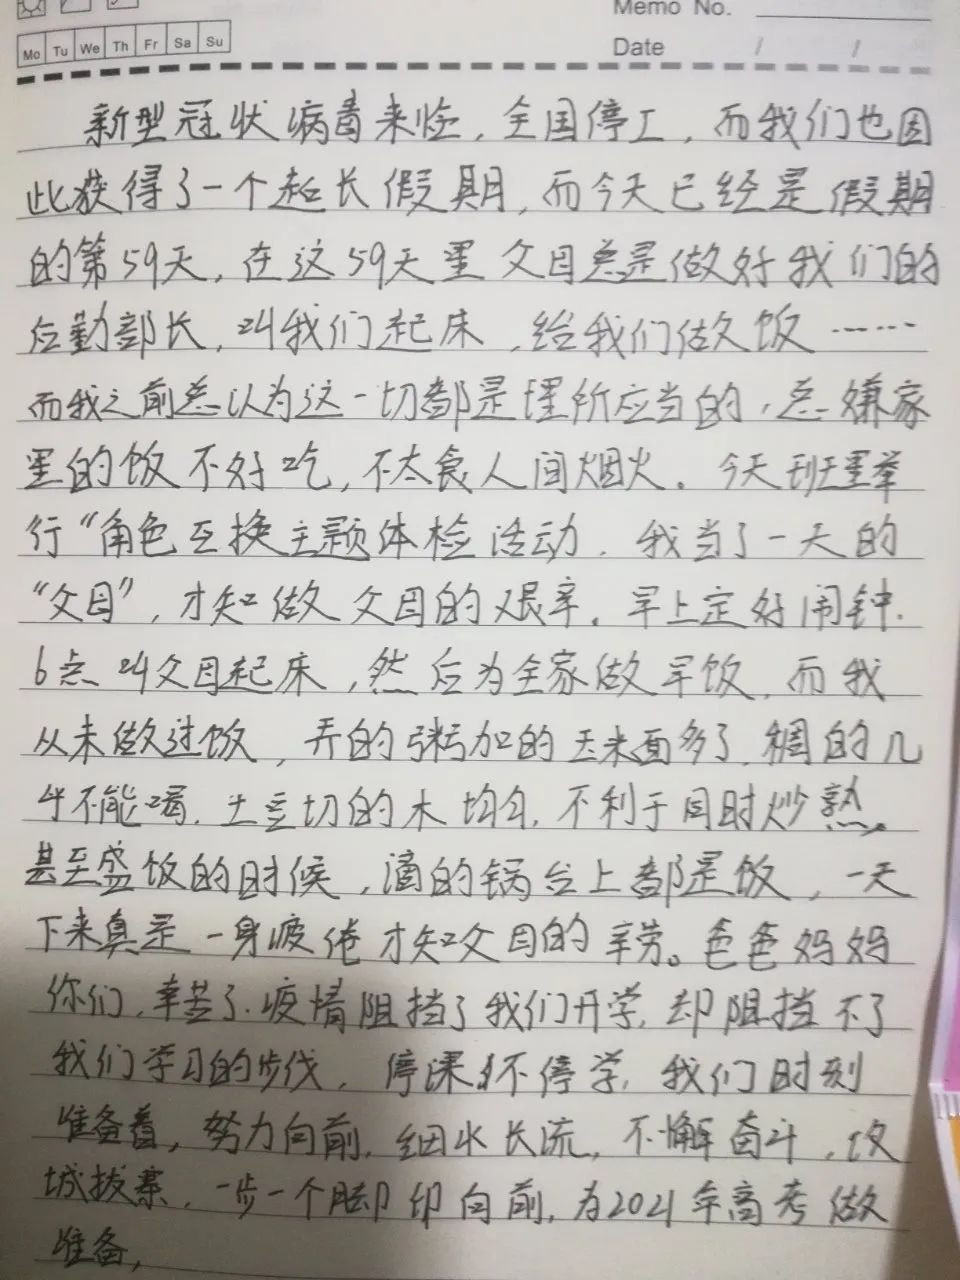 Memo No.
Mo Tu We Th Fr Sa Su
Date / /
新型冠状病毒来临，全国停工，而我们也因
此获得了一个超长假期，而今天已经是假期
的第59天，在这59天里父母总是做好我们的
后勤部长，叫我们起床，给我们做饭……
而我之前总以为这一切都是理所应当的，总嫌家
里的饭不好吃，不太食人间烟火。今天班里举
行“角色互换主题体检活动，我当了一天的
“父母”，才知做父母的艰辛。早上定好闹钟.
6点叫父母起床，然后为全家做早饭，而我
从未做过饭，弄的粥加的玉米面多了，稠的几
乎不能喝，土豆切的木均匀，不利于同时炒熟。
甚至盛饭的时候，滴的锅台上都是饭，一天
下来真是一身疲倦才知父母的辛劳。爸爸妈妈
你们，辛苦了.疫情阻挡了我们开学，却阻挡不了
我们学习的步伐，停课不停学，我们时刻
准备着，努力向前，细水长流，不懈奋斗，攻
城拔寨，一步一个脚印向前，为2021年高考做
准备，